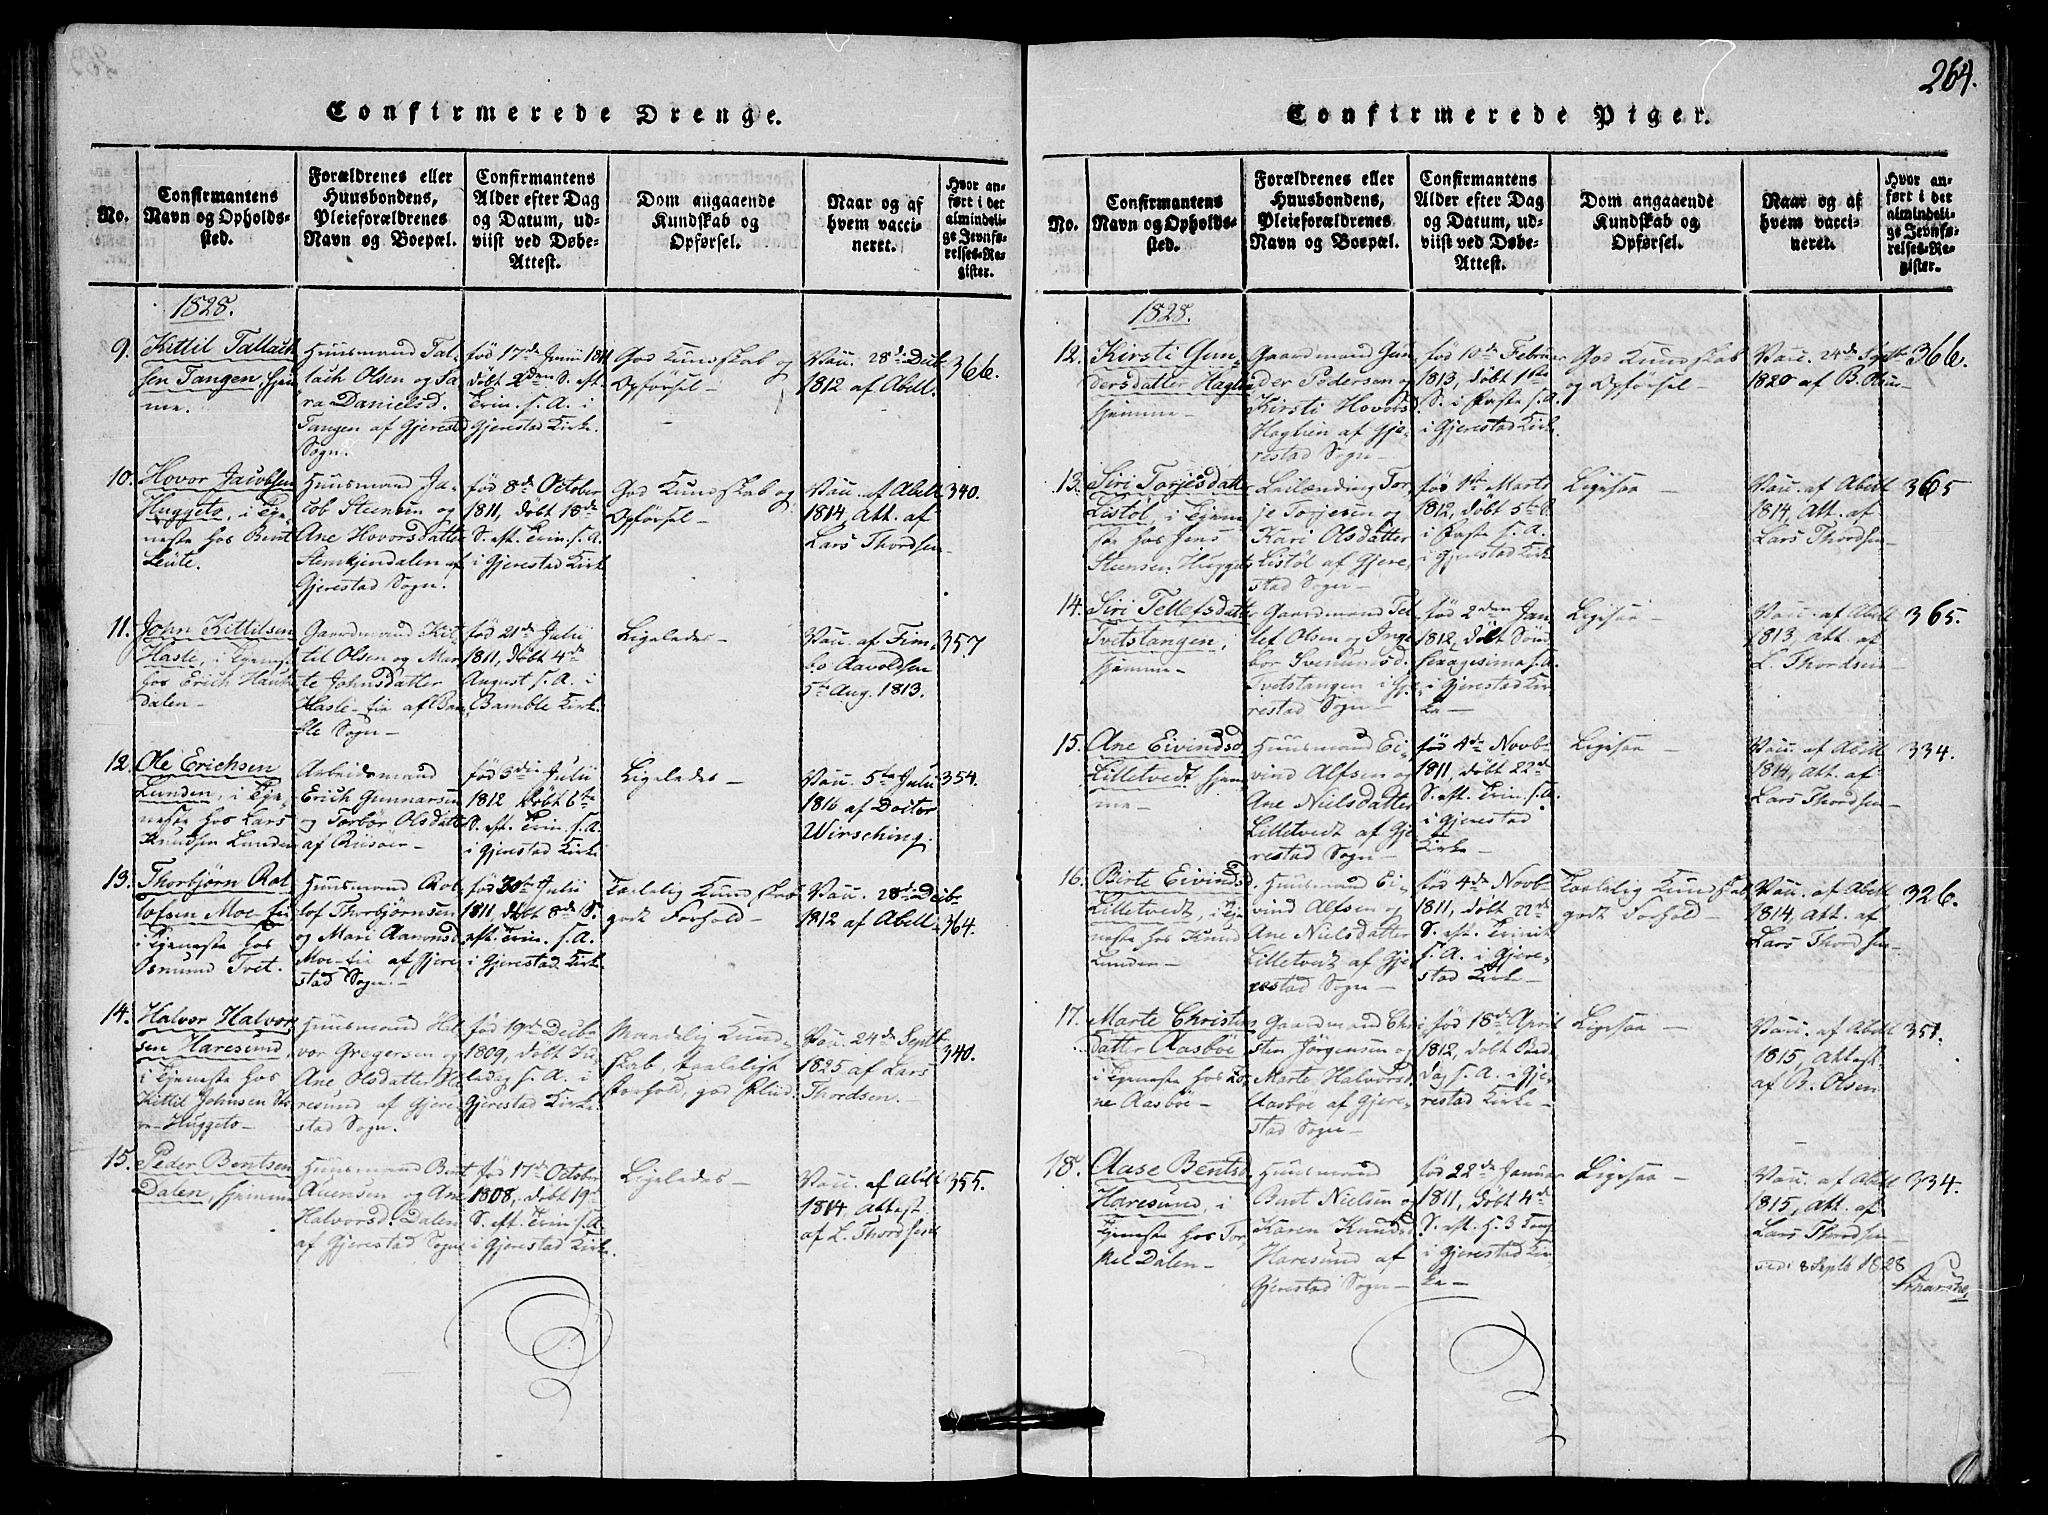 264.
Confirmerede Drenge.
No.
Confirmantens
Navn og Opholds-
sted.
Forældrenes eller
Huusbondens,
Pleieforældrenes
Navn og Boepæl.
Confirmantens
Alder efter Dag
og Datum, ud-
viist ved Døbe-
Attest.
Dom angaaende
Kundskab og
Opførsel.
Naar og af
hvem vacci-
neret.
Hvor an-
ført i det
almindeli-
ge Jevnfø-
relses-Re-
gister.
1828.
9.
Kittil Tallach
sen Tangen, hjem-
me.
Huusmand Tal-
lach Olsen og Sa-
ra Danielsd.
Tangen af Gjerestad
Sogn.
fød 17de Junii 1811
døbt 2den S. eft.
Trin. s. A. i
Gjerestad Kirke.
God Kundskab og
Opførsel -
Vacc. 28d. Decb
1812 af Abell.
366.
10.
Hovor Jacobsen
Huggeto, i Tje-
neste hos Bent
Leite.
Huusmand Ja-
cob Steensen og
Ane Hovorsdatter
Stemkjendalen af
Gjerestad Sogn.
fød 8de October
1811, døbt 18de
S. eft. Trin. s. A.
i Gjerestad Kirk
God Kundskab og
Opførsel -
Vacc. af Abell
1814, Att. af
Lars Thordsen -
340.
11.
John Kittilsen
Hasle, i Tjene
hos Erich Hauk
dalen -
Gaardmand Kit
til Olsen og Mar
te Johnsdatter
Hasle-eie af Bam
ble Sogn -
fød 21de Julii
1811, døbt 4de
August s. A. i
Bamble Kirk.
Ligeledes -
Vacc. af Tim-
bo Aavoldsen
5te Aug. 1813.
357
12.
Ole Erichsen
Lunden, i Tje-
neste hos Lars
Knudsen Lunden
Arbeidsmand
Erich Gunnarsen
og Torbør Olsdatte
af Riisøer -
fød 3die Julii
1812 døbt 6te
S. eft. Trin. s. A.
i Gjerestad Kirke
Ligeledes -
Vacc. 5te Julii
1816 af Doctor
Wirsching.
354.
13.
Thorbjørn Rol
lofsen Moe-eie
i Tjeneste hos
Osmund Tvet.
Huusmand Rol
lof Thorbjørnsen
og Mari Aanonsd.
Moe-eie af Gjere
stad Sogn. -
fød 30te Julii
1811 døbt 8de S.
eft. Trin. s. A.
i Gjerestad Kirke
Taalelig Kundskab
godt Forhold -
Vacc. 28de Decb.
1812 af Abell -
364.
14.
Halvor Halvor
sen Haresund,
i Tjeneste hos
Kittil Johnsen
Huggeto -
Huusmand Hal
vor Gregersen og
Ane Olsdatter Ha
resund af Gjere
stad Sogn.
fød 19de Decbr
1809, døbt Jule
dag s. A. i
Gjerestad Kirke
Maadelig Kund-
skab, taaleligt
Forhold, god Flid
Vacc. 24de Septb
1825 af Lars
Thordsen. -
340.
15.
Peder Bentsen
Dalen, hjemme
Huusmand Bent
Auensen og Ane
Halvorsd. Dalen
af Gjerestad Sogn
fød 17de October
1808, døbt 19de
S. eft. Trin. s. A.
i Gjerestad Kirk.
Ligeledes -
Vacc. af Abell
1814, Attest.
af L. Thordsen
355.
Confirmerede Piger.
No.
Confirmantens
Navn og Opholds-
sted.
Forældrenes eller
Huusbondens,
Pleieforældrenes
Navn og Boepæl.
Confirmantens
Alder efter Dag
og Datum, ud-
viist ved Døbe-
Attest.
Dom angaaende
Kundskab og
Opførsel.
Naar og af
hvem vacci-
neret.
Hvor an-
ført i det
almindeli-
ge Jevnfø-
relses-Re-
gister.
1828.
12.
Kirsti Gun-
dersdatter Haglen
hjemme -
Gaardmand Gun
der Pedersen og
Kirsti Hovorsd.
Haglien af Gje-
restad Sogn -
fød 10de Februar
1813, døbt 1ste
S. i Faste s. A.
i Gjerestad Kirk.
God Kundskab
og Opførsel -
Vacc. 24de Septb
1820 af B. Olsen
366.
13.
Siri Torjesdatter
Listøl, i Tjene
ste hos Jens
Steensen Hugget
Leilænding Tor
je Torjesen og
Kari Olsdatter
Listøl af Gjere-
stad Sogn -
fød 1ste Marts
1812, døbt 5te S.
i Faste s. A.
i Gjerestad Kirke
Ligesaa -
Vacc. af Abell
1814, Att. af
Lars Thordsen -
365
14.
Siri Tellefsdatter
Tvetstangen,
hjemme -
Gaardmand Tel
lef Olsen og Inge
bor Svenumsd.
Tvetstangen i Gje
restad Sogn -
fød 2den Jan
1812, døbt Sønd
Sexagesima s. A.
i Gjerestad Kir-
ke -
Ligesaa -
Vacc. af Abell
1813. Att. af
L. Thordsen -
365.
15.
Ane Eivindsd.
Lilletvedt hjem
me -
Huusmand Ei-
vind Alfsen og
Ane Nielsdatter
Lilletvedt af Gje
restad Sogn -
fød 4de Novb
1811, døbt 22de
S. eft. Trin. s. A.
i Gjerestad
Kirke -
Ligesaa -
Vacc. af Abell
1814, Att. af
Lars Thordsen -
334.
16.
Birte Eivindsd
Lilletvedt, i Tje
neste hos Knud
Lunden -
Huusmand Ei-
vind Alfsen og
Ane Nielsdatter
Lilletvedt af Gje
restad Sogn -
fød 4de Novb
1811, døbt 22de
S. eft. Trinit
s. A. i Gjere-
stad Kirke -
Taalelig Kundskab
godt Forhold -
Vacc. af Abell
1814, Att. af
Lars Thordsen
326.
17.
Marte Christen
datter Aasbøe
i Tjeneste hos
ne Aasbøe -
Gaardmand Chri
sten Jørgensen og
Marte Halvorsd.
Aasbøe af Gjere-
stad Sogn -
fød 18de April
1812, døbt Bede
dag s. A. i Gje-
restad Kirke -
Ligesaa -
Vacc. af Abell
1815, Attest.
af B. Olsen
351.
18.
Aase Bentsd.
Haresund, i
Tjeneste hos Tor-
kel Dalen -
Huusmand
Bent Nielsen og
Karen Knudsd
Haresund af
Gjerestad Sogn -
fød 22de Januar
1811, døbt 4de
S. eft. H. 3 Kong
i Gjerestad Kir-
ke -
Ligesaa -
Vacc. af Abell
1815, Att. af
Lars Thordsen -
334.
8 Septb 1828